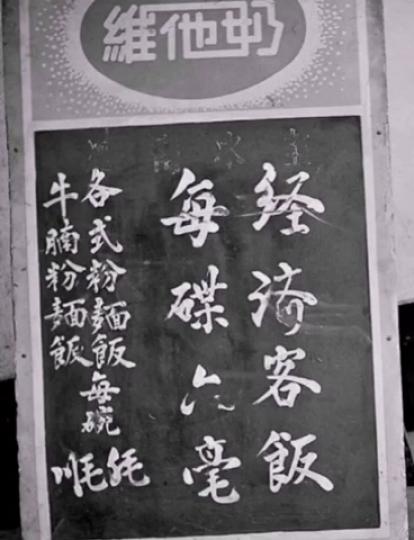 維他奶
経济客飯
每碟六毫
各式粉麵飯每碗
牛腩粉麵飯